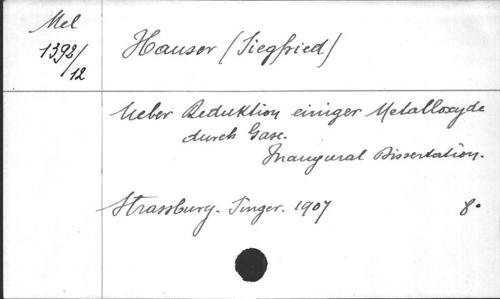 Mel
1392/12
Hauser (Siegfried)
Ueber Reduktion einiger Metalloxyde
durch Gase.
Inaugural Dissertation.
Strassburg. Singer. 1907 8°